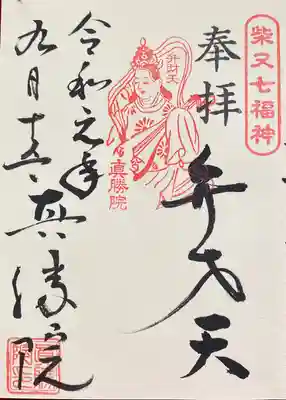 柴又七福神
奉拝
弁才天
弁財天
眞勝院
令和元年
九月
真勝院